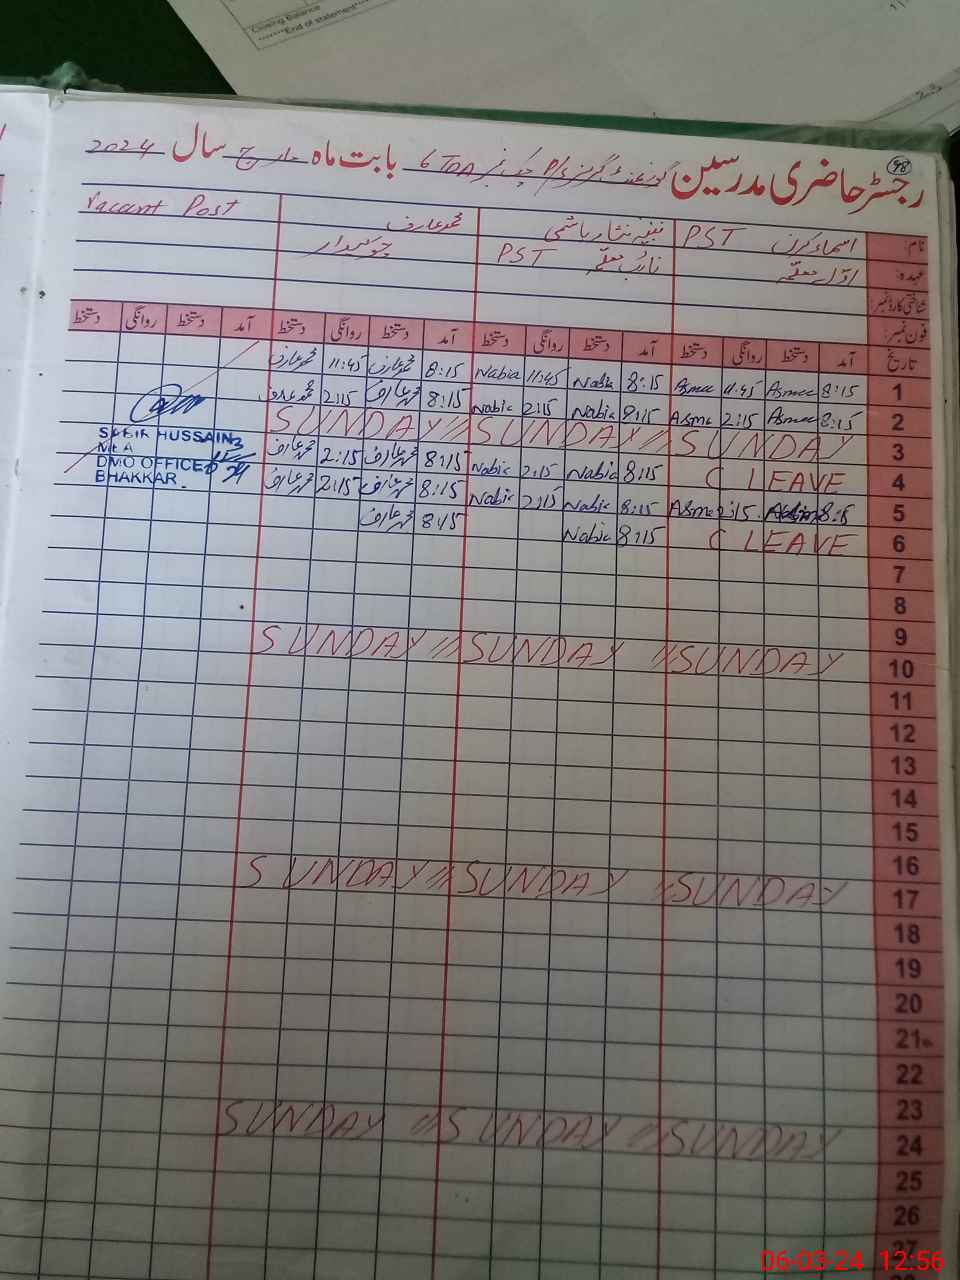 Closing Balance
*******End of statement*******
98
رجسٹر حاضری مدرسین گورنمنٹ گرلز P/S چک نمبر 6 TDA بابت ماہ مارچ سال 2024
نام: اسماء کرن PST نبیہ نثار ہاشمی محمد عارف Vacant Post
عہدہ: اوّل معلمہ نائب معلمہ PST چوکیدار
شناختی کارڈ نمبر:
فون نمبر:
تاریخ آمد دستخط روانگی دستخط آمد دستخط روانگی دستخط آمد دستخط روانگی دستخط آمد دستخط روانگی دستخط
1 8:15 Asma 11:45 Asma 8:15 Nabia 11:45 Nabia 8:15 محمد عارف 11:45 محمد عارف
2 8:15 Asma 2:15 Asma 8:15 Nabia 2:15 Nabia 8:15 محمد عارف 2:15 محمد عارف
3 SUNDAY // SUNDAY // SUNDAY
4 C LEAVE 8:15 Nabia 2:15 Nabia 8:15 محمد عارف 2:15 محمد عارف
5 8:15 Asma 2:15 Asma 8:15 Nabia 2:15 Nabia 8:15 محمد عارف 2:15 محمد عارف
6 C LEAVE 8:15 Nabia 8:15 محمد عارف
SABIR HUSSAIN
MEA
DMO OFFICE
BHAKKAR.
7
8
9
10 SUNDAY // SUNDAY // SUNDAY
11
12
13
14
15
16
17 SUNDAY // SUNDAY // SUNDAY
18
19
20
21
22
23
24 SUNDAY // SUNDAY // SUNDAY
25
26
27
06-03-24 12:56